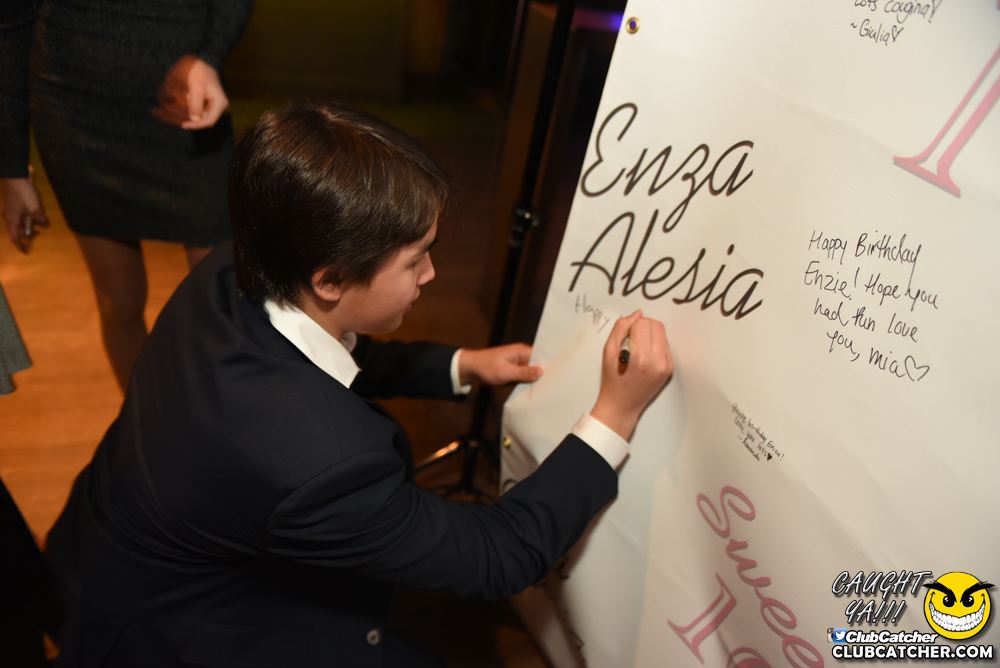 lots cougina!
~Giulia♡
Enza
Alesia
Happy Birthday
Enzie! Hope you
had fun love
you, Mia♡
Happy
Happy birthday Enza!
love you lots♥
Sweet
1
CAUGHT
YA!!!
ClubCatcher
CLUBCATCHER.COM